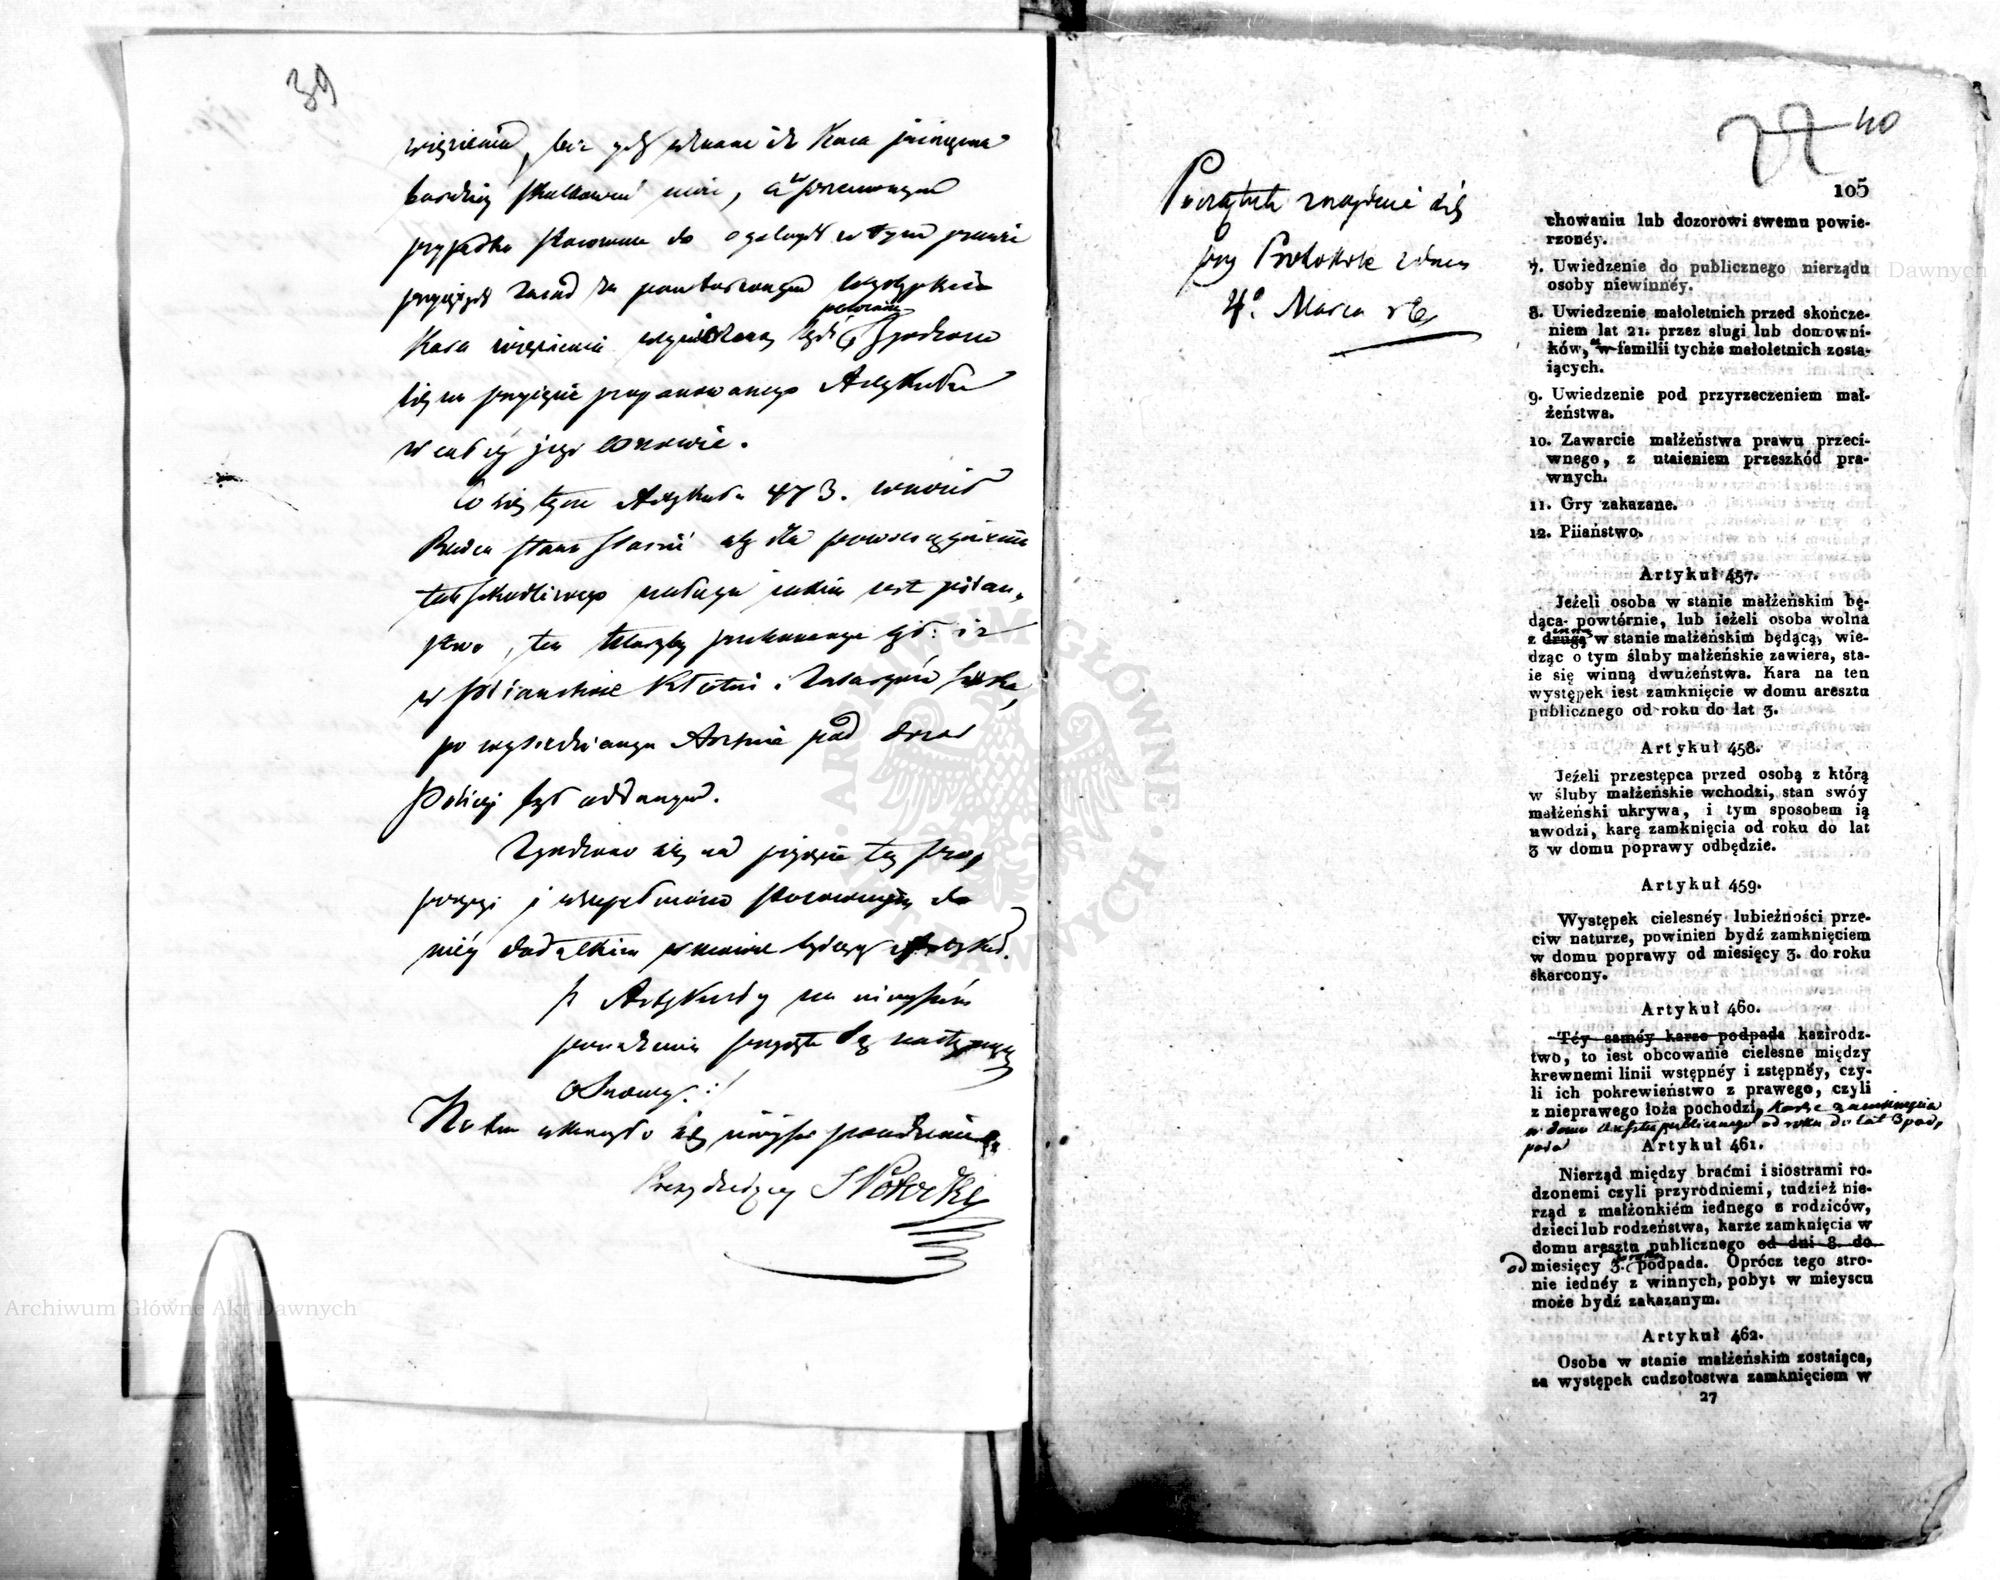 39
więzienia, lecz gdy uznano iż Kara pieniężna
bardziej skutkować może, a w ponowionym
przypadku stosownie do ogólnych w tym prawie
przyjętych zasad za powtórzonym występkiem
Kara więzienia wymierzoną być powinna, zgodzono
się na przyjęcie proponowanego Artykułu
w całej jego osnowie.
Co się tyczy Artykułu 473. wnosił
Radca Stanu aby dla powściągnienia
tak szkodliwego nałogu jakim jest pijań-
stwo, ten któryby przekonany był: iż
w pijaństwie Kłótni i Zatargów szuka,
po wysiedzianym Areszcie pod dozór
Policyi był oddanym.
Zgodzono się na przyjęcie tey pro-
pozycyi i uzupełniono stosownym do
niéy dodatkiem w mowie będący artykuł.
Artykuły na ninieyszém
posiedzeniu przyjęte są następującey
Osnowy:
Na tem ukończyło się ninieysze posiedzenie
Prezydujący S Potocki
40
Początek znayduie się
przy Protokole z dnia
4º Marca r b
105
chowaniu lub dozorowi swemu powie-
rzonéy.
7. Uwiedzenie do publicznego nierządu
osoby niewinnéy.
8. Uwiedzenie małoletnich przed skończe-
niem lat 21. przez sługi lub domowni-
ków, w familii tychże małoletnich zosta-
iących.
9. Uwiedzenie pod przyrzeczeniem mał-
żeństwa.
10. Zawarcie małżeństwa prawu przeci-
wnego, z utaieniem przeszkód pra-
wnych.
11. Gry zakazane.
12. Piiaństwo.
Artykuł 457.
Jeżeli osoba w stanie małżeńskim bę-
dąca powtórnie, lub ieżeli osoba wolna
z drugą w stanie małżeńskim będącą, wie-
dząc o tym śluby małżeńskie zawiera, sta-
ie się winną dwużeństwa. Kara na ten
występek iest zamknięcie w domu aresztu
publicznego od roku do lat 3.
Artykuł 458.
Jeżeli przestępca przed osobą z którą
w śluby małżeńskie wchodzi, stan swóy
małżeński ukrywa, i tym sposobem ią
uwodzi, karę zamknięcia od roku do lat
3 w domu poprawy odbędzie.
Artykuł 459.
Występek cielesnéy lubieżności prze-
ciw naturze, powinien bydź zamknięciem
w domu poprawy od miesięcy 3. do roku
skarcony.
Artykuł 460.
Téy saméy karze podpada kazirodz-
two, to iest obcowanie cielesne między
krewnemi linii wstępnéy i zstępnéy, czy-
li ich pokrewieństwo z prawego, czyli
z nieprawego łoża pochodzi, karze zamknięcia
w domu aresztu publicznego od roku do lat 3 pod-
pada
Artykuł 461.
Nierząd między braćmi i siostrami ro-
dzonemi czyli przyrodniemi, tudzież nie-
rząd z małżonkiém iednego z rodziców,
dzieci lub rodzeństwa, karze zamknięcia w
domu aresztu publicznego od dni 8. do
od miesięcy 3. do roku podpada. Oprócz tego stro-
nie iednéy z winnych, pobyt w mieyscu
może bydź zakazanym.
Artykuł 462.
Osoba w stanie małżeńskim zostaiąca,
za występek cudzołostwa zamknięciem w
27
Archiwum Główne Akt Dawnych